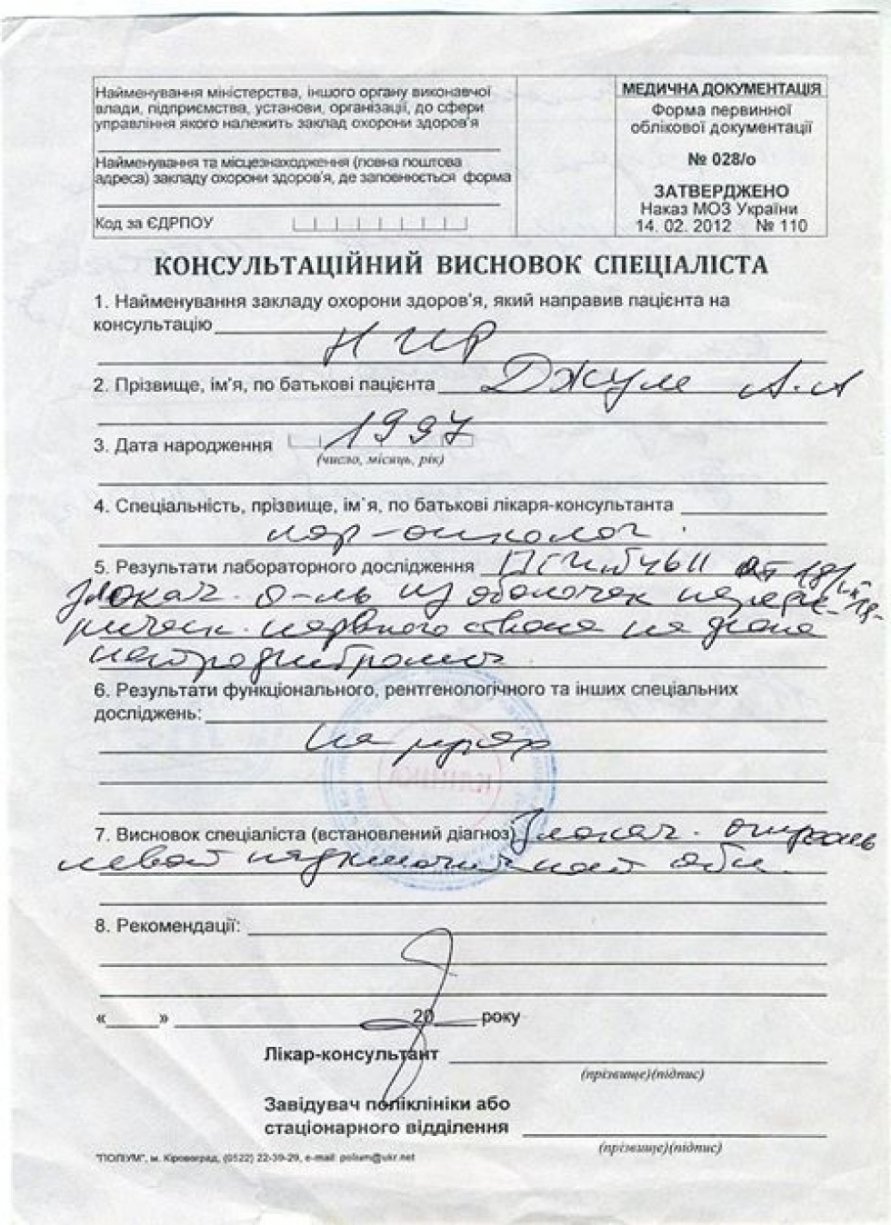 Найменування міністерства, іншого органу виконавчої
влади, підприємства, установи, організації, до сфери
управління якого належить заклад охорони здоров'я
Найменування та місцезнаходження (повна поштова
адреса) закладу охорони здоров'я, де заповнюється форма
Код за ЄДРПОУ
МЕДИЧНА ДОКУМЕНТАЦІЯ
Форма первинної
облікової документації
№ 028/о
ЗАТВЕРДЖЕНО
Наказ МОЗ України
14. 02. 2012 № 110
КОНСУЛЬТАЦІЙНИЙ ВИСНОВОК СПЕЦІАЛІСТА
1. Найменування закладу охорони здоров'я, який направив пацієнта на
консультацію
2. Прізвище, ім'я, по батькові пацієнта Джуле А.А
3. Дата народження 1997
(число, місяць, рік)
4. Спеціальність, прізвище, ім`я, по батькові лікаря-консультанта
лор-онколог.
5. Результати лабораторного дослідження от
Злокач. о-ль из оболочек перифе-
рическ. нервного ствола на фоне
нейрофиброматоз
6. Результати функціонального, рентгенологічного та інших спеціальних
досліджень:
на руках
КЛІНІКА
7. Висновок спеціаліста (встановлений діагноз) Злокач. опухоль
левой надключичной обл.
8. Рекомендації:
« » 20 року
Лікар-консультант
(прізвище)(підпис)
Завідувач поліклініки або
стаціонарного відділення
(прізвище)(підпис)
"ПОЛІУМ", м. Кіровоград, (0522) 22-39-29, e-mail: polium@ukr.net